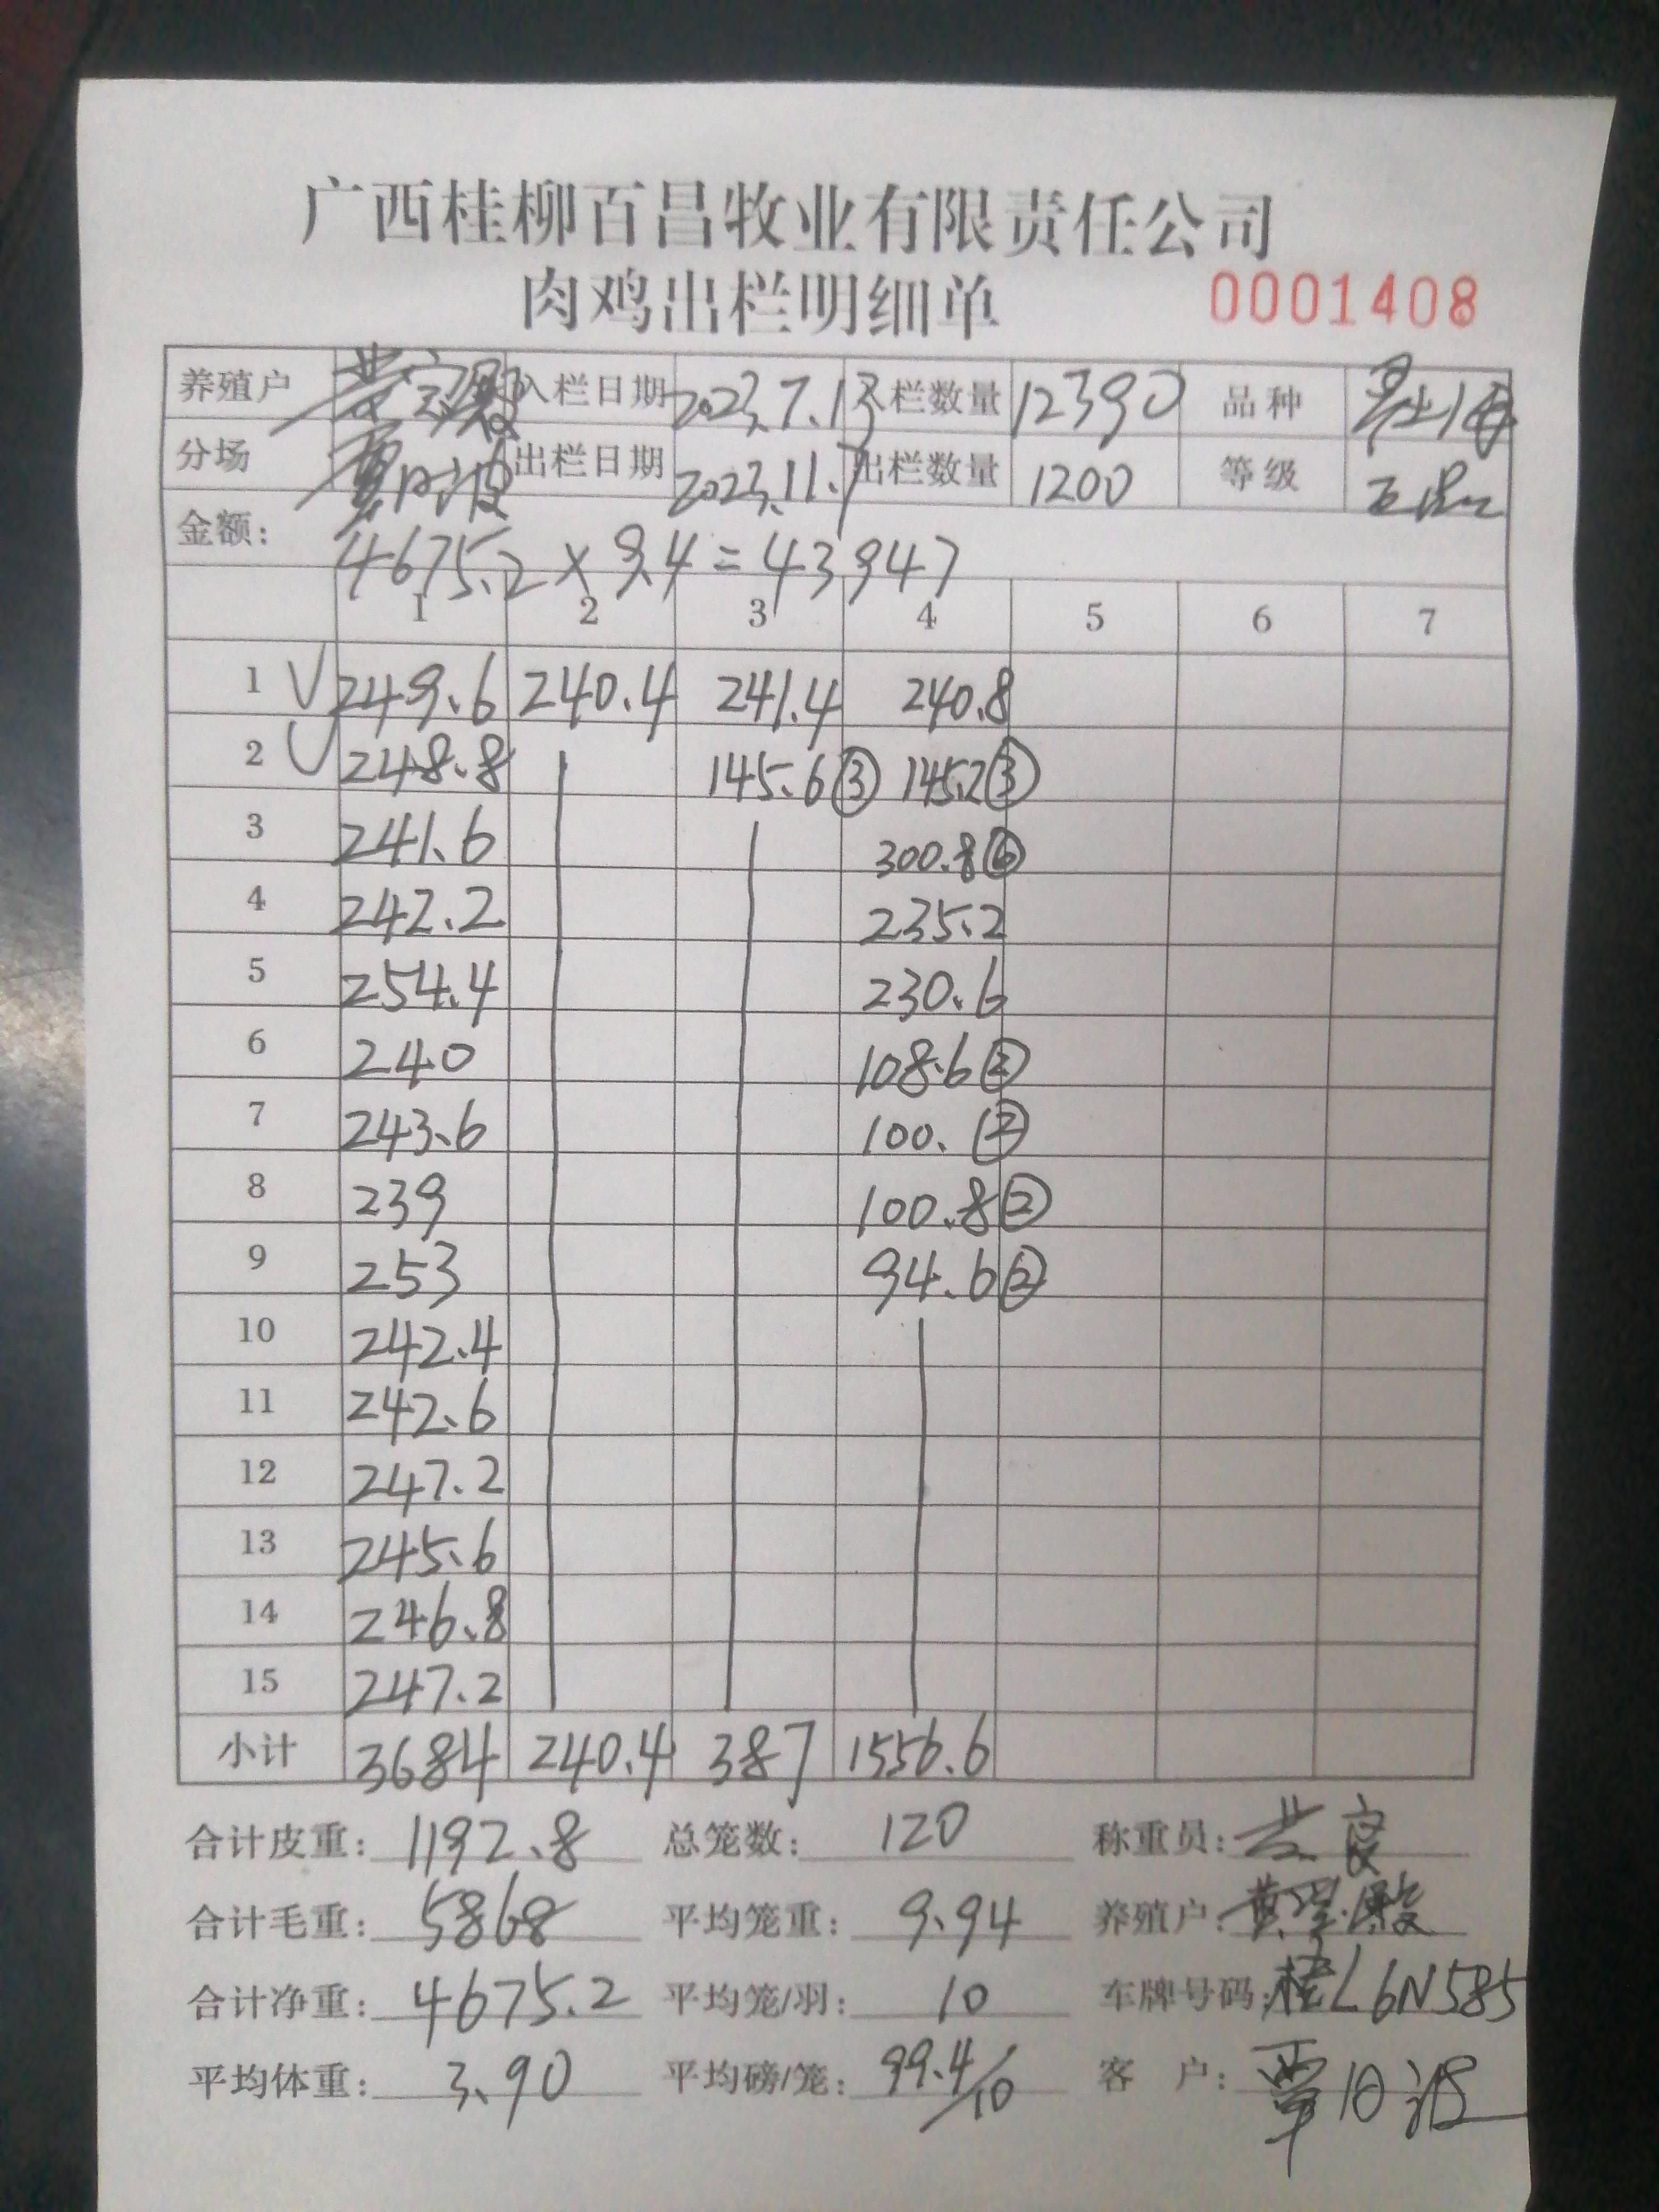 广西桂柳百昌牧业有限责任公司
肉鸡出栏明细单 0001408
养殖户 入栏日期 2023.7.13 入栏数量 12390 品种
分场 出栏日期 2023.11.7 出栏数量 1200 等级 正品
金额: 4675.2 × 9.4 = 43947
1 2 3 4 5 6 7
1 V 249.6 240.4 241.4 240.8
2 V 248.8 145.6③ 145.2③
3 241.6 300.8⑥
4 242.2 235.2
5 254.4 230.6
6 240 108.6②
7 243.6 100. ②
8 239 100.8②
9 253 94.6②
10 242.4
11 242.6
12 247.2
13 245.6
14 246.8
15 247.2
小计 3684 240.4 387 1556.6
合计皮重: 1192.8 总笼数: 120 称重员:
合计毛重: 5868 平均笼重: 9.94 养殖户:
合计净重: 4675.2 平均笼/羽: 10 车牌号码: 桂L6N585
平均体重: 3.90 平均磅/笼: 99.4/10 客户: 覃日波